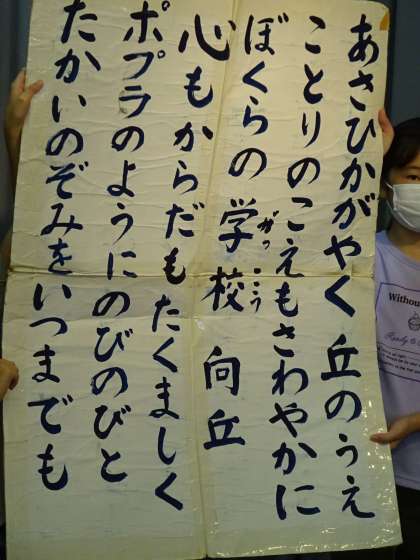 あさひかがやく 丘のうえ
ことりのこえもさわやかに
ぼくらの 学校 向丘
がっこう
心もからだも たくましく
ポプラのようにのびのびと
たかいのぞみをいつまでも
Without
Ready to